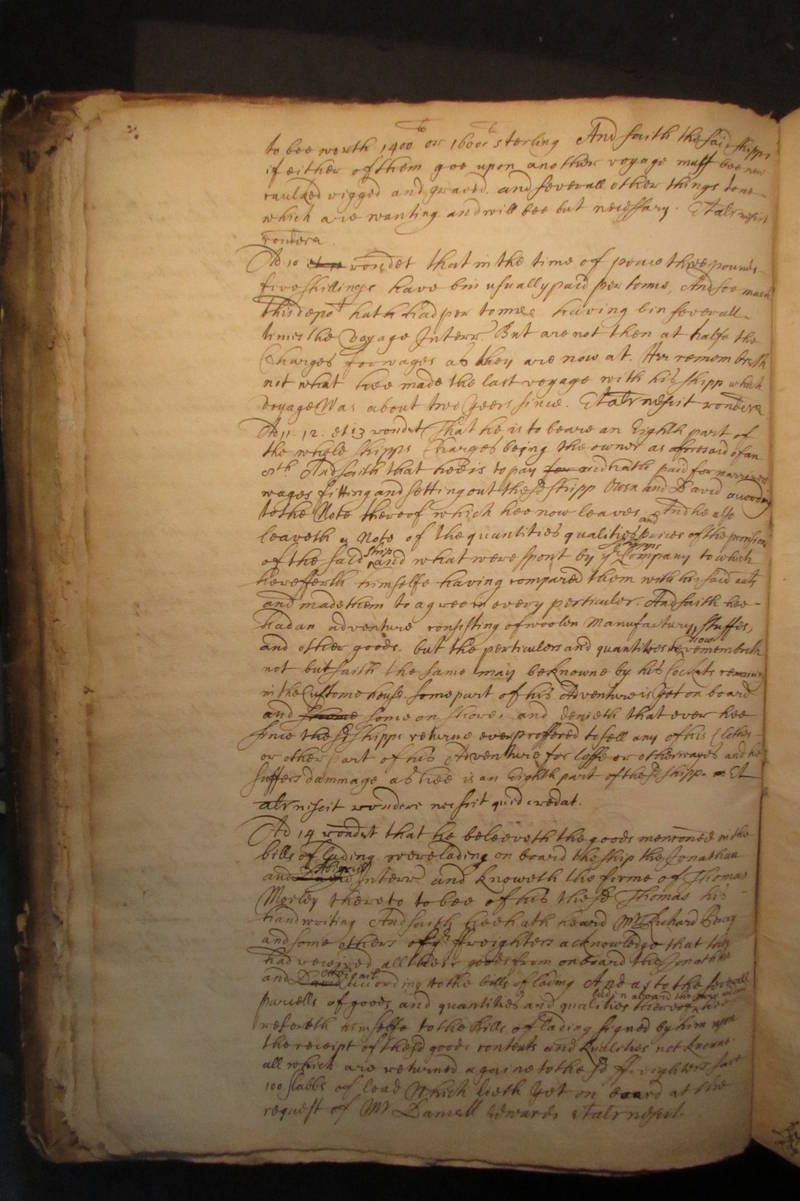 to bee worth 1400 or 1600 li sterling And saith the said shipps
if either of them goe upon another voyage must bee new
caulked rigged and graved. and severall other things done
which are wanting and will bee but necessary. Et alr nescit
rondere.
Ad 10 rondet that in the time of peace three pounds
five shillings have bin usually paid per tonne, And soe much
this depot hath had per tonne having bin severall
times the voyage Interr. But are not then at halfe the
Charges for wages as they are now at. Hee remembreth
not what hee made the last voyage with his shipp which
voyage Was about two Yeers since. Et alr nescit rondere
Ad 11. 12. et 13 rondet That he is to beare an Eighth part of
the whole shipps Charges being the owner as aforesaid of an
8th And saith that hee is to pay and hath paid for
wages fitting and setting out the sd shipp Owen and David according
to the Note thereof which hee now leaves And he also
leaveth a Note of the quantities qualities and prices of the provisions
of the said ship and what were spent by ye shipps Company to which
hee referreth himselfe having compared them with his said
and made them to agree in every perticuler. And saith hee
had an adventure consisting of woolen Manufactury stuffes,
and other goods. but the perticulers and quantities hee now remembreth
not but saith the same may be knowne by his Cockets remaining
in the Custome house some part of his Adventure is yet on board
and some on shore, and denieth that ever hee
since the sd shipps returne ever proffered to sell any of his Clothes
or other part of his Adventure for losse or otherwayes and he
suffers dammage as hee is an Eighth part of the sd shipp. Et
alr nescit rondere nec scit quid credat.
Ad 14 rondet that he beleeveth the goods mentioned in the
bills of lading were lading on board the ship the Jonathan
and Interr and knoweth the firme of Thomas
Morley thereto to bee of his the sd Thomas his
handwriting And saith hee hath heard Mr Richard
and some others of ye freighters acknowledge that they
had received all their goods from on board the Jonathan
and according to the bills of lading And as to the severall
parcells of goods and quantities and qualities thereof hee
refereth himselfe to the Bills of lading signed by him upon
the receipt of the sd goods contents and qualities not knowne
all which are returned againe to the sd ffreighters save
100 slabbs of lead Which lieth yet on board at the
request of Mr Daniell Edwards Et alr nescit.